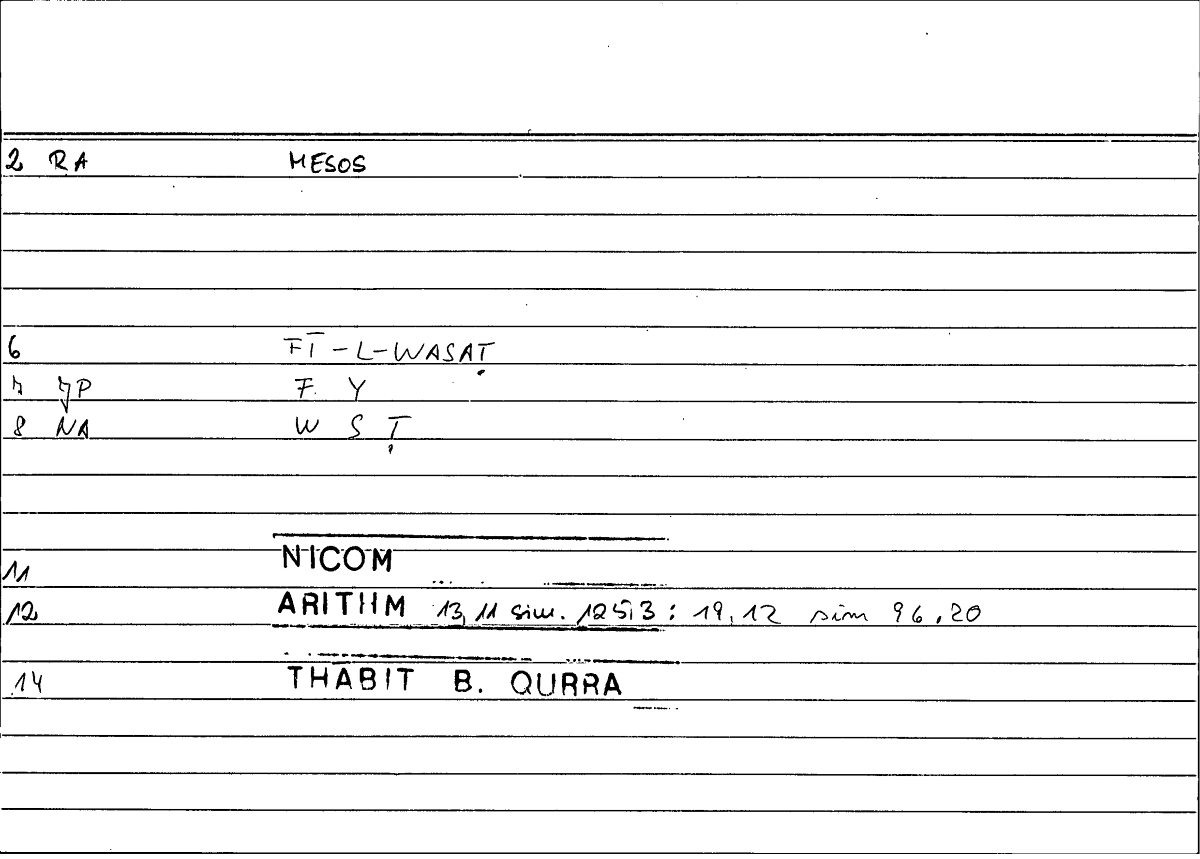 2 RA MESOS
6 FĪ-L-WASAṬ
7 JP F Y
8 NA W S Ṭ
11 NICOM
12 ARITHM 13,11 sim. 125,3 : 19,12 sim 96.20
14 THĀBIT B. QURRA